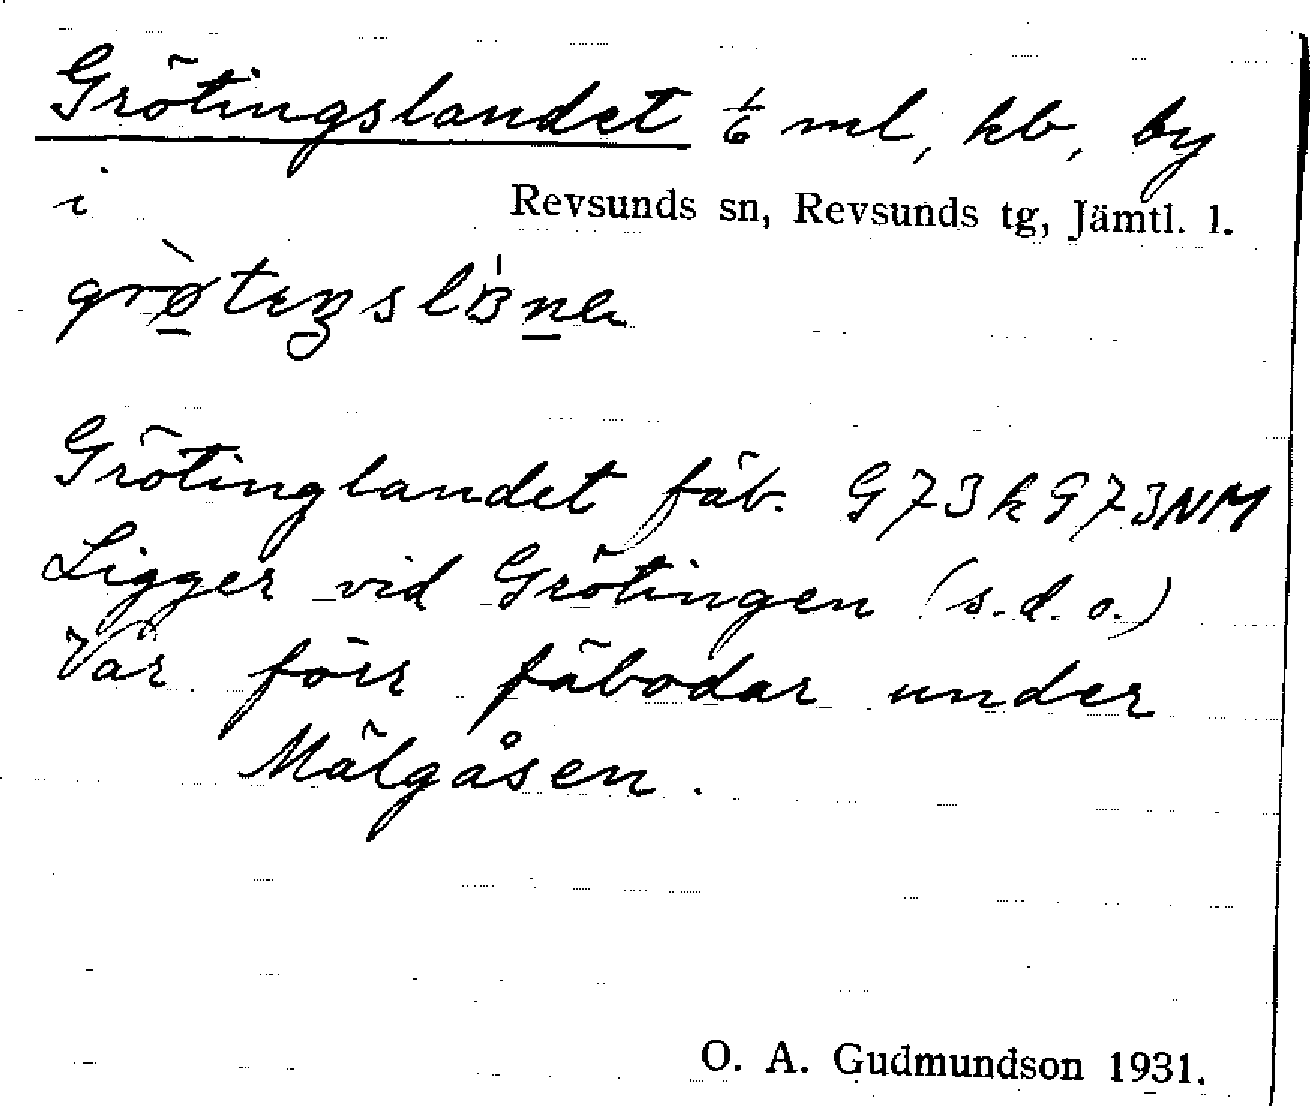 Grötingslandet 1/6 ml, kb, by
i Revsunds sn, Revsunds tg, Jämtl. l.
Grötinglandet fäb. G73k G73NM
Ligger vid Grötingen (s.d.o.)
Var förr fäbodar under
Mälgåsen.
O. A. Gudmundson 1931.